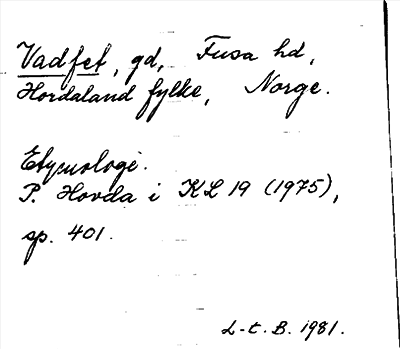 Vadfet, gd, Fusa hd,
Hordaland fylke, Norge.
Etymologi.
P. Hovda i KL 19 (1975),
sp. 401.
L-t. B. 1981.